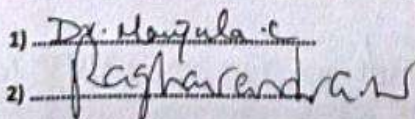 1) Dr. Manjula .C
2) Raghavendra N